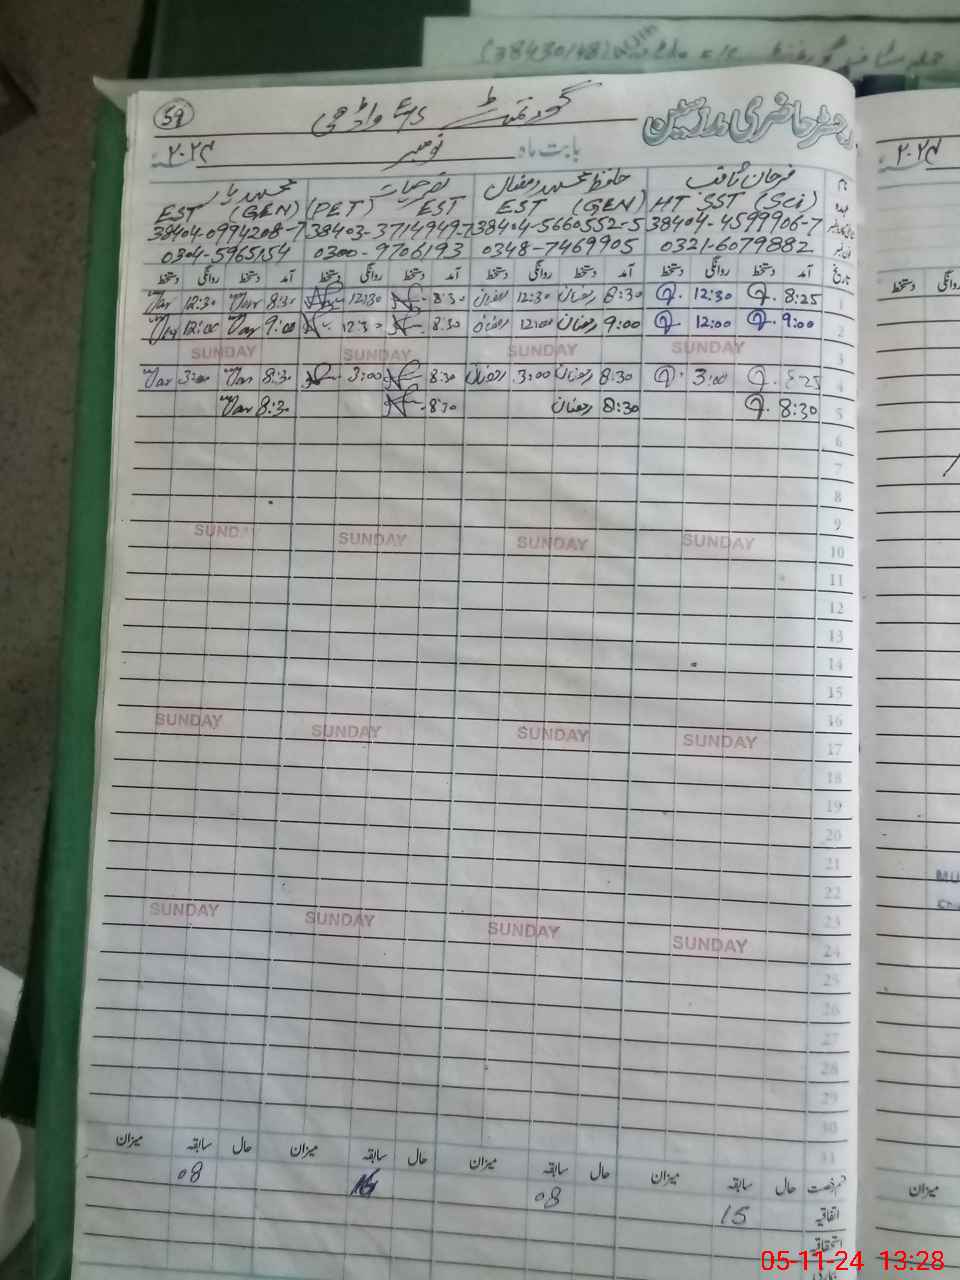 رجسٹر حاضری مدرسین
گورنمنٹ
59
بابت ماہ نومبر ۲۰۲۴
فرحان ثاقب حافظ محمد رمضان نصر حیات محمد یار
EST (GEN) (PET) EST EST (GEN) HT SST (Sci)
38404-0994208-7 38403-3714949-7 38404-5660552-5 38404-4599906-7
0304-5965154 0300-9706193 0348-7469905 0321-6079882
تاریخ آمد دستخط روانگی دستخط آمد دستخط روانگی دستخط آمد دستخط روانگی دستخط آمد دستخط روانگی دستخط
12:30 8:30 12:30 8:30 رمضان 12:30 رمضان 8:30 12:30 8:25 1
12:00 9:00 12:30 8:30 رمضان 12:00 رمضان 9:00 12:00 9:00 2
SUNDAY SUNDAY SUNDAY SUNDAY 3
3:00 8:30 3:00 8:30 رمضان 3:00 رمضان 8:30 3:00 8:25 4
8:30 8:30 رمضان 8:30 8:30 5
6
7
8
9
SUNDAY SUNDAY SUNDAY SUNDAY 10
11
12
13
14
15
16
SUNDAY SUNDAY SUNDAY SUNDAY 17
18
19
20
21
22
23
SUNDAY SUNDAY SUNDAY SUNDAY 24
25
26
27
28
29
30
31
حال سابقہ میزان حال سابقہ میزان حال سابقہ میزان حال سابقہ میزان
اتفاقیہ 15 08 08
استحقاقیہ
05-11-24 13:28